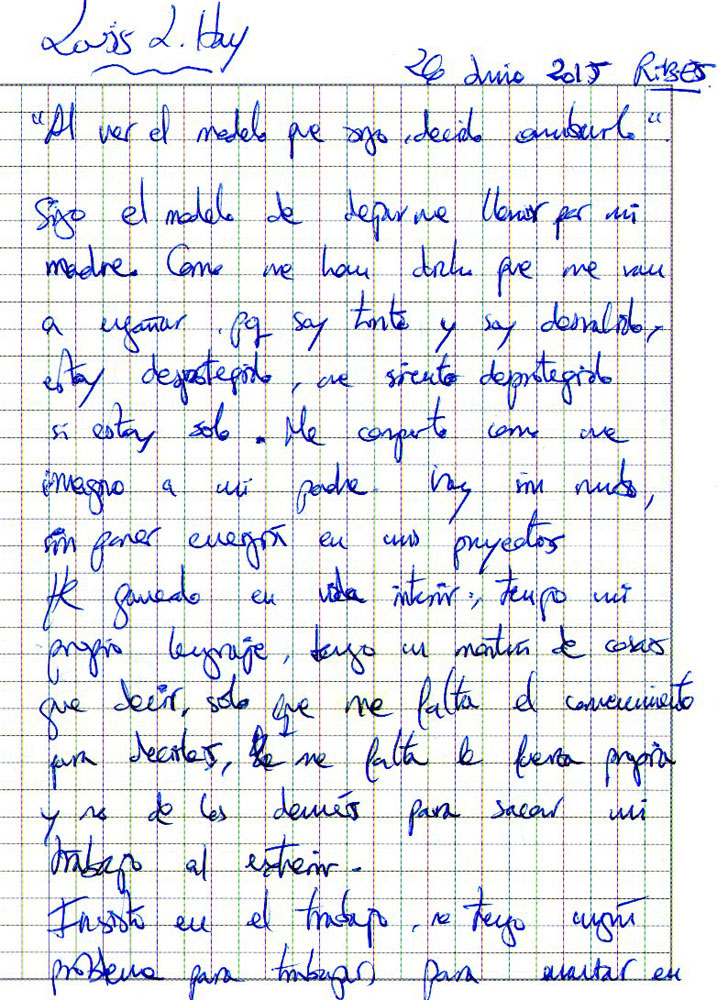 Louis L. Hay
26 Junio 2015 RiBES
"Al ver el modelo que sigo, decido cambiarlo"
Sigo el modelo de dejarme llevar por mi
madre. Como me han dicho que me van
a engañar, pq soy tonto y soy desvalido,
estoy desprotegido, me siento deprotegido
si estoy solo. Me comporto como me
imagino a mi padre. Voy sin
sin poner energía en mis proyectos
He ganado en vida interior, tengo mi
propio lenguaje, tengo un montón de cosas
que decir, solo que me falta el convencimiento
para decirlas, me falta la fuerza propia
y no de los demás para sacar mi
trabajo al exterior.
Insisto en el trabajo, no tengo ningún
problema para trabajar, para en